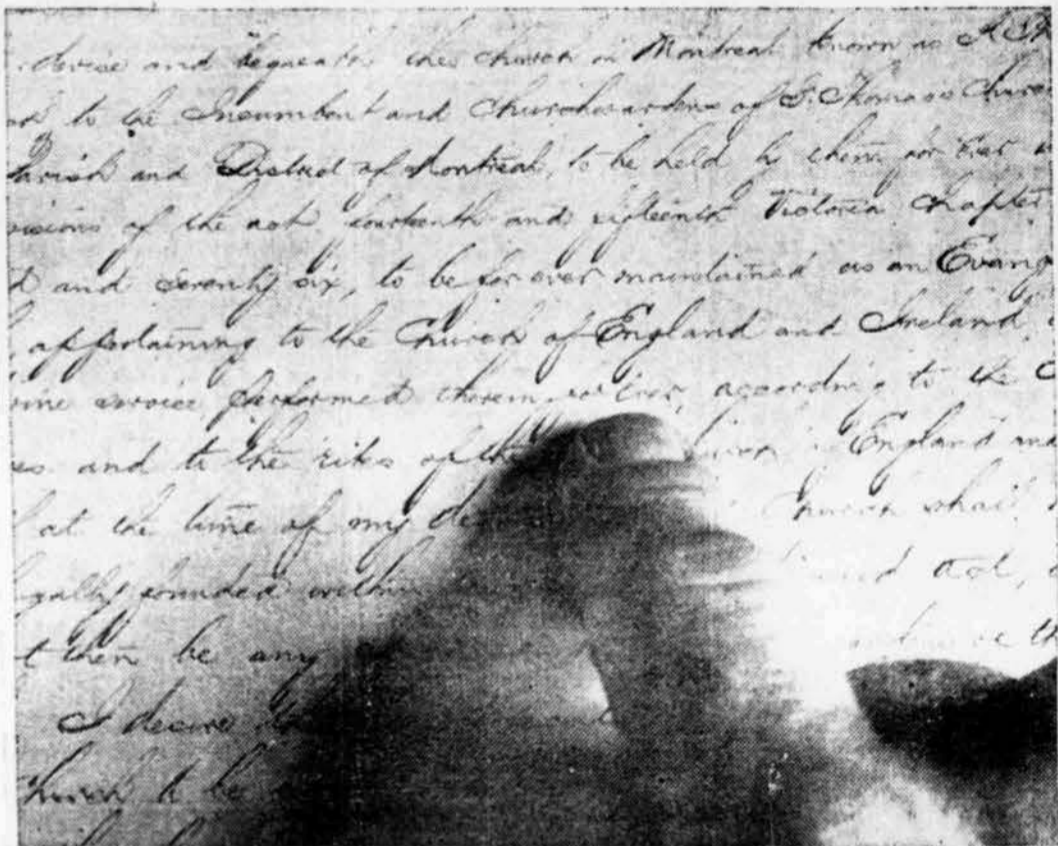 devise and bequeath the church in Montreal known as S. Th
to the Incumbent and Churchwardens of S. Thomas's Churc
Parish and District of Montreal, to be held by them for ever
visions of the act fourteenth and fifteenth Victoria chapter
and seventy six, to be for ever maintained as an Evang
appertaining to the Church of England and Ireland,
vine service performed therein for ever, according to the
es and to the rites of the England and
at the time of my de Church shall
gally founded within act,
t then be any
I desire
Church to be